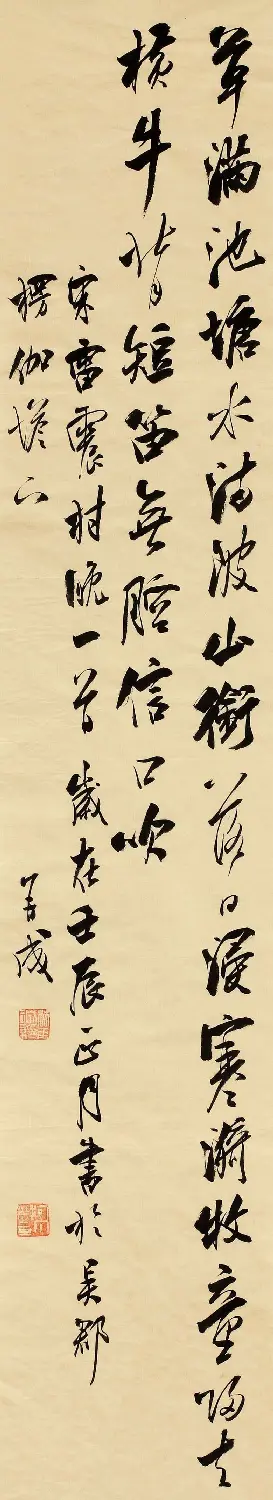 草滿池塘水滿陂山銜落日浸寒漪牧童歸去
橫牛背短笛無腔信口吹
宋雷震村晚一首歲在壬辰正月書於吳郡
楞伽塔下
善成